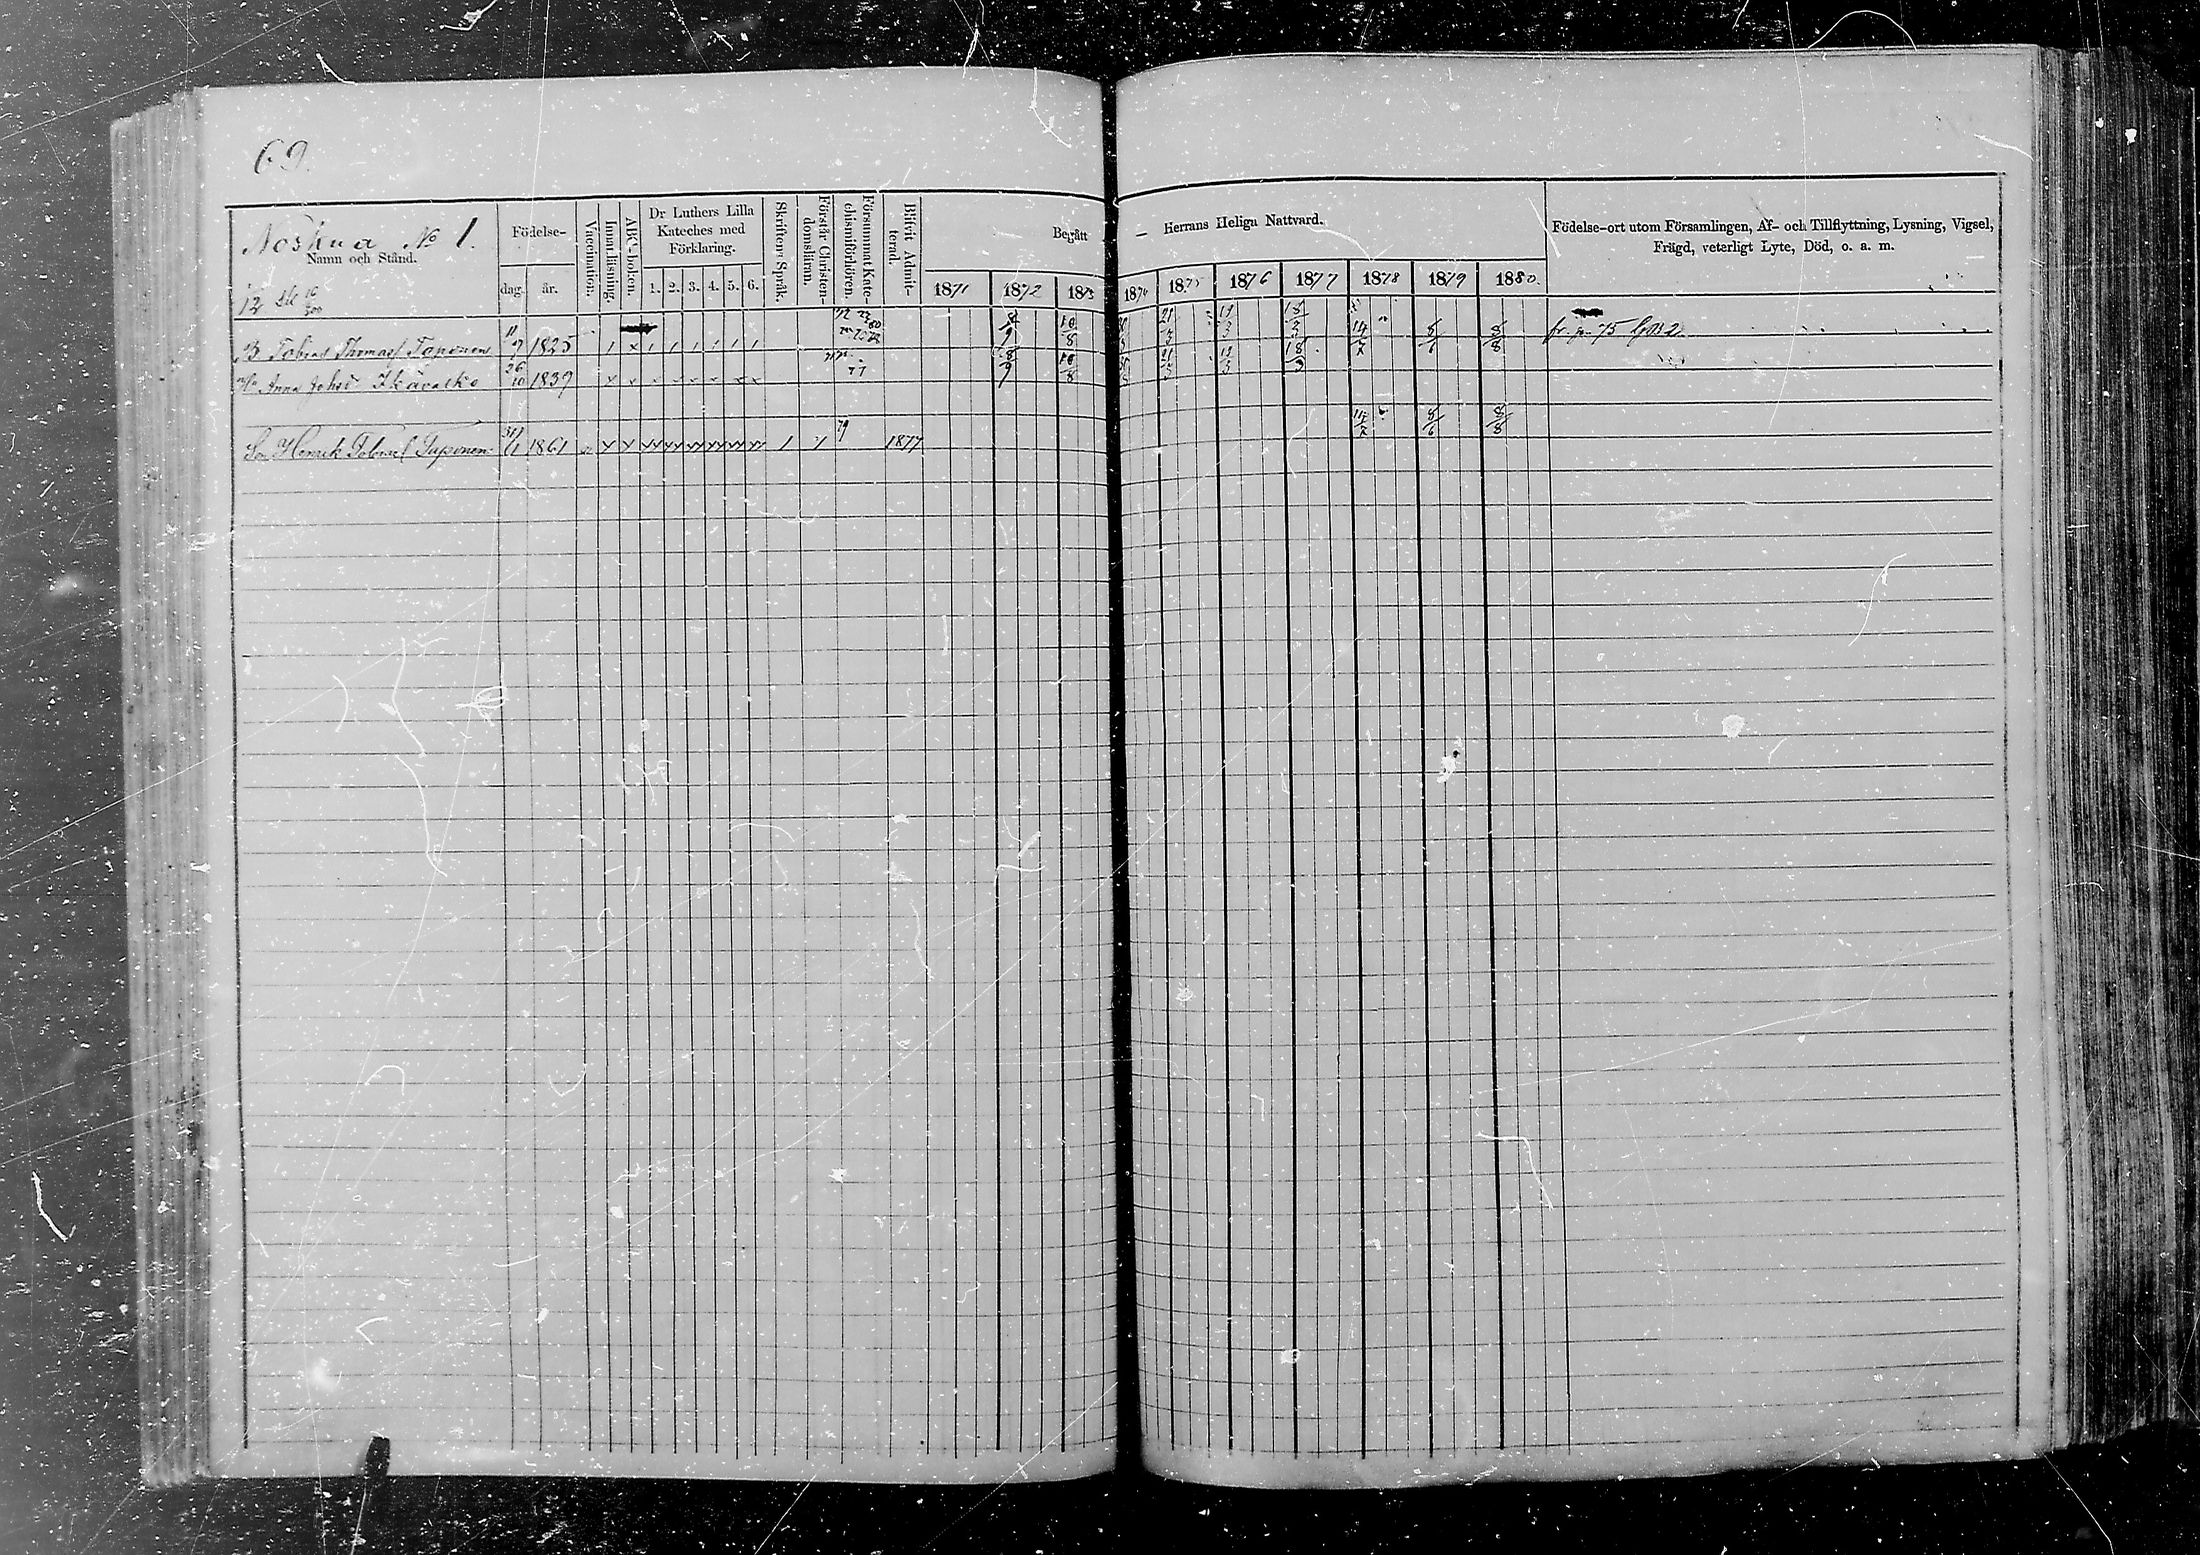 69.
Noskua No 1.
Namn och Stånd.
Födelse-
dag.
år.
Vaccination.
Innanläsning.
ABC-boken.
Dr Luthers Lilla
Kateches med
Förklaring.
1. 2. 3. 4. 5. 6.
Skriftens Språk.
Förstår Christen-
domsläran.
Försummat Kate-
chismiförhören.
Blifvit Admit-
terad.
Begått
— Herrans Heliga Nattvard.
1871 1872 1873
1874 1875 1876 1877 1878 1879 1880.
Födelse-ort utom Församlingen, Af- och Tillflyttning, Lysning, Vigsel,
Frägd, veterligt Lyte, Död, o. a. m.
12
B Tobias Thomass Taponen 1825
8/9 10/8 18/3 14/7 8/6 8/8
Anna Johsd 26/10 1839
8/9 10/8 18/3
Son Henrik Tobiass Taponen 1861 79 1877
14/7 8/6 8/8